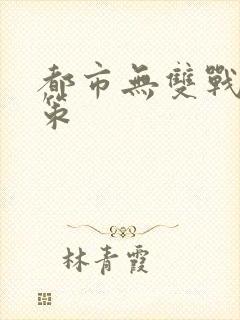 都市無雙戰
策
林青霞